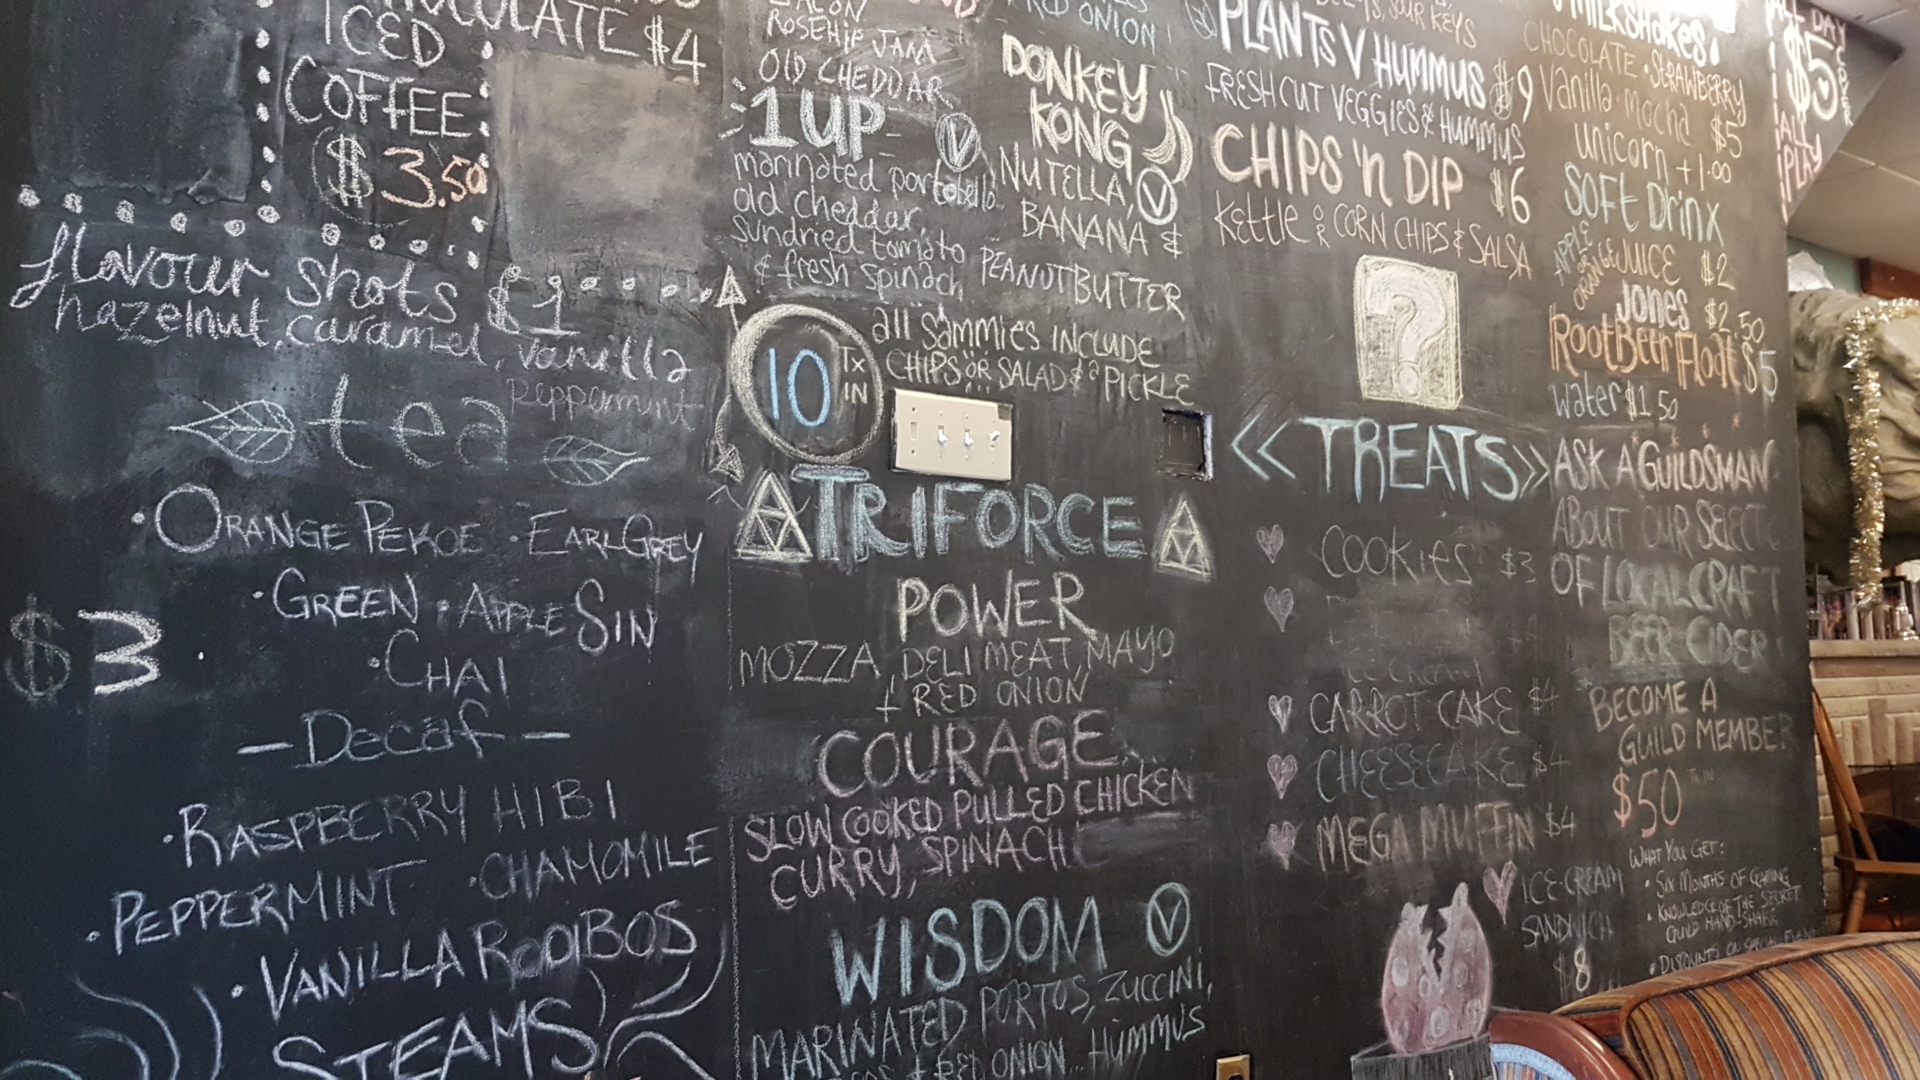 CHOCOLATE $4
ICED
COFFEE
$3.50
flavour shots $1
hazelnut, caramel, vanilla
peppermint
tea
$3
• ORANGE PEKOE • EARL GREY
• GREEN • APPLE SIN
• CHAI
— Decaf —
• RASPBERRY HIBI
• PEPPERMINT • CHAMOMILE
• VANILLA ROOIBOS
STEAMS
BACON
ROSEHIP JAM
OLD CHEDDAR
1UP V
marinated portobello
old cheddar,
sundried tomato
& fresh spinach
RED ONION
DONKEY
KONG
NUTELLA, V
BANANA &
PEANUT BUTTER
10 TX IN
all sammies INCLUDE
CHIPS OR SALAD & a PICKLE
TRIFORCE
POWER
MOZZA, DELI MEAT, MAYO
+ RED ONION
COURAGE
SLOW COOKED PULLED CHICKEN
CURRY, SPINACH
WISDOM V
MARINATED PORTOS, ZUCCINI,
+ RED ONION... HUMMUS
SOUR KEYS
PLANTS V HUMMUS $9
FRESH CUT VEGGIES & HUMMUS
CHIPS 'n DIP $6
Kettle & CORN CHIPS & SALSA
?
<< TREATS >>
COOKIES $3
$4
ICE CREAM
CARROT CAKE $4
CHEESECAKE $4
MEGA MUFFIN $4
ICE-CREAM
SANDWICH
$8
MILKSHAKES!
CHOCOLATE • STRAWBERRY
Vanilla • mocha $5
unicorn +1.00
SOFT DRINX
APPLE OR ORANGE JUICE $2
JONES $2.50
Root Beer Float $5
water $1.50
ASK A GUILDSMAN
ABOUT OUR SELECT
OF LOCAL CRAFT
BEER CIDER
BECOME A
GUILD MEMBER
$50 TX IN
WHAT YOU GET:
• SIX MONTHS OF GAMING
• KNOWLEDGE OF THE SECRET
GUILD HAND-SHAKE
• DISCOUNTS ON SPECIAL
ALL DAY
$5
ALL
PLAY